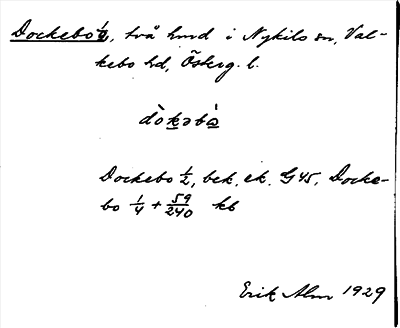 Dockebo ½, två hmd i Nykils sn, Val-
kebo hd, Österg. l.
dòkəbò
Dockebo ½, bek. ek. G 45. Docke-
bo 1/4 + 59/240 kb
Erik Alm 1929